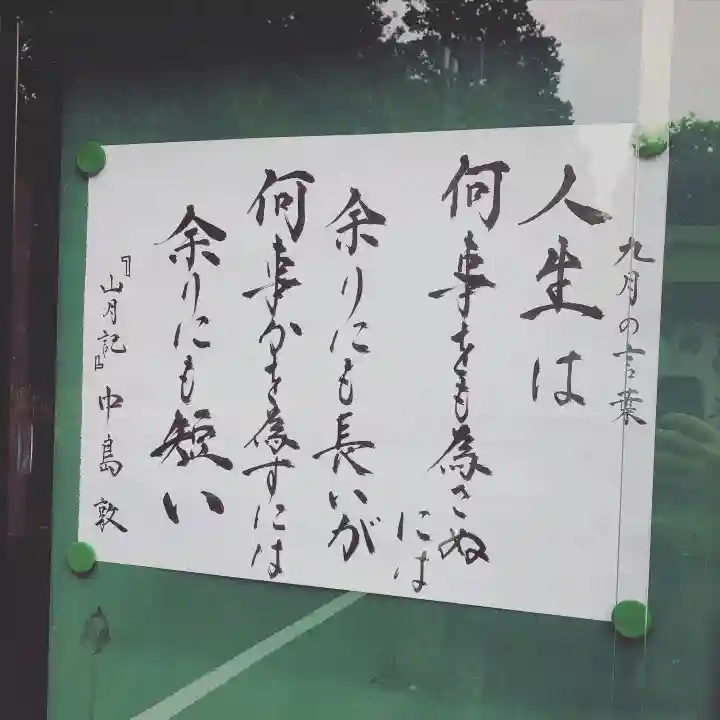 九月の言葉
人生は
何事をも為さぬ
には
余りにも長いが
何事かを為すには
余りにも短い
『山月記』中島敦